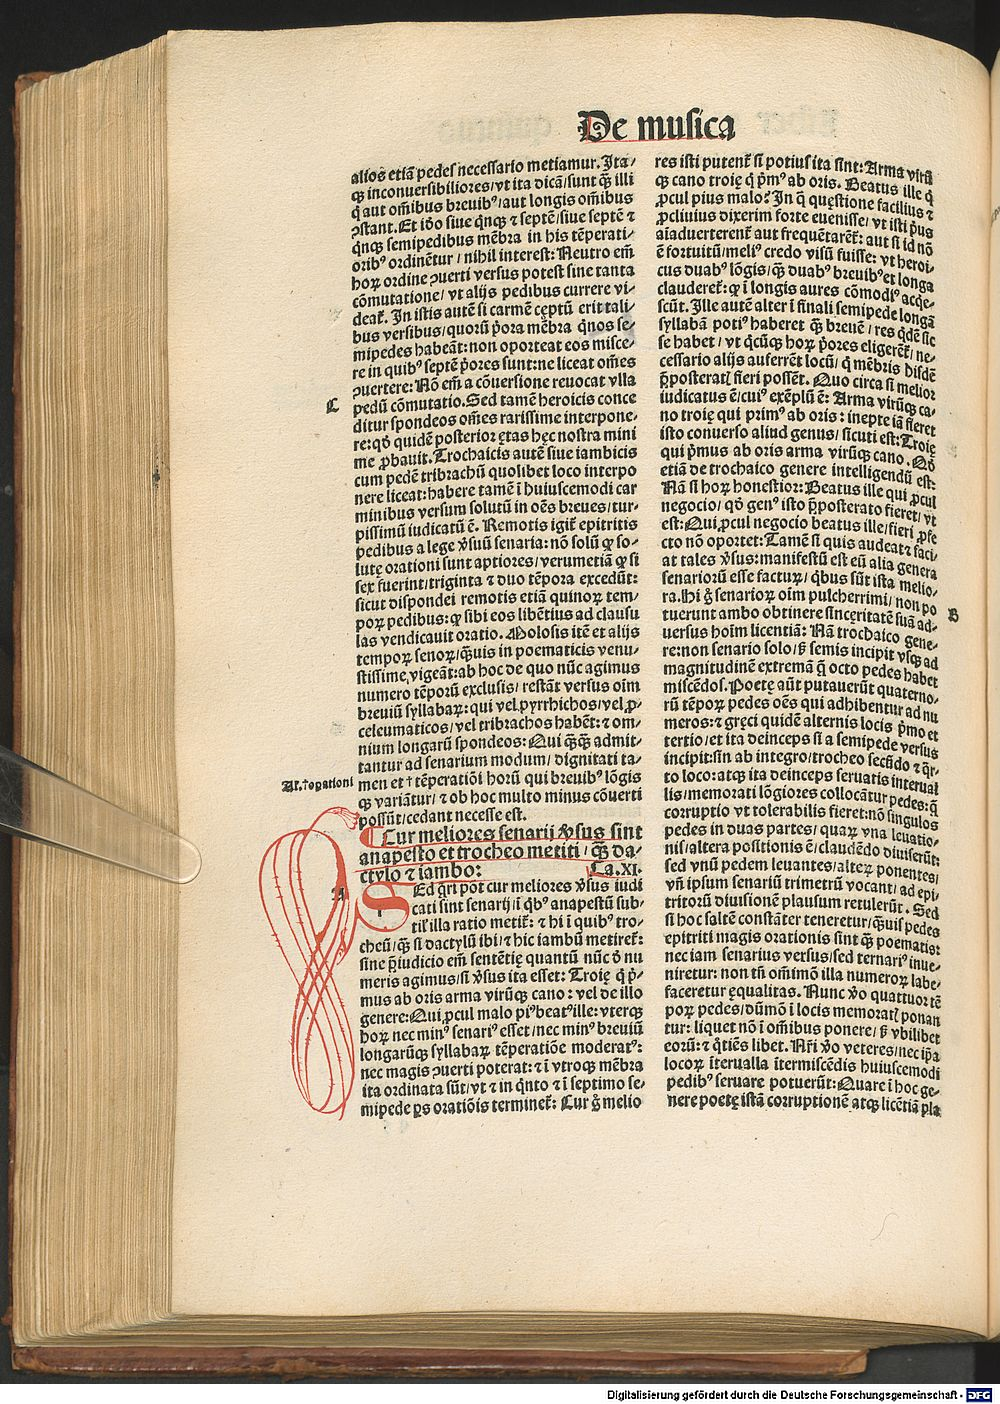 De musica
alios etiã pedes necessario metiamur. Ita-
qꝫ inconuersibiliores/vt ita dicã/sunt q̃ꝫ illi
q̃ aut om̃ibus breuibꝰ/aut longis om̃ibus
ꝯstant. Et iõo siue q̃nqꝫ ⁊ septẽ/siue septẽ ⁊
q̃nqꝫ semipedibus mẽbra in his tẽperati-
oribꝰ ordinẽtur / nihil interest: Neutro em̃
hoꝝ ordine ꝯuerti versus potest sine tanta
cõmutatione/ vt alijs pedibus currere vi-
deat̃. In istis autẽ si carmẽ cęptũ erit tali-
bus versibus/quorũ p̃ora mẽbra q̃nos se-
mipedes habeãt: non oporteat eos misce-
re in quibꝰ septẽ p̃ores sunt: ne liceat om̃es
ꝯuertere: Nõ em̃ a cõuersione reuocat vlla
C pedũ cõmutatio. Sed tamẽ heroicis conce
ditur spondeos om̃es rarissime interpone-
re: qõ quidẽ posterior ętas hęc nostra mini
me ꝓbauit. Trochaicis autẽ siue iambicis
cum pedẽ tribrachũ quolibet loco interpo
nere liceat: habere tamẽ ĩ huiuscemodi car
minibus versum solutũ in oẽs breues/tur-
pissimũ iudicatũ ẽ. Remotis igit̃ epitritis
pedibus a lege v̾suũ senaria: nõ solũ ꝙ so-
lutę orationi sunt aptiores/verumetiã ꝙ si
sex fuerint/triginta ⁊ duo tẽpora excedũt:
sicut dispondei remotis etiã quinoꝝ tem-
poꝝ pedibus: ꝙ sibi eos libẽtius ad clausu
las vendicauit oratio. Molosis itẽ et alijs
tempoꝝ senoꝝ/q̃uis in poematicis venu-
stissime vigeãt: ab hoc de quo nũc agimus
numero tẽporũ exclusis/ restãt versus oim̃
breuiũ syllabaꝝ: qui vel pyrrhichos/vel ꝓ-
celeumaticos/vel tribrachos habẽt: ⁊ om-
nium longarũ spondeos: Qui q̃ꝫq̃ꝫ admit-
tantur ad senarium modum/ dignitati ta-
Al. †opationi men et † tẽperatiõi horũ qui breuibꝰ lõgis
qꝫ variãtur/ ⁊ ob hoc multo minus cõuerti
possũt/cedant necesse est.
Cur meliores senarii v̾sus sint
anapesto et trocheo metiti / q̃ꝫ da-
ctylo ⁊ iambo: Ca. XI.
A SEd q̃ri pot cur meliores v̾sus iudi
cati sint senarij/ĩ q̃bꝰ anapestũ sub-
til̾ illa ratio metit̃: ⁊ hi ĩ quibꝰ tro-
cheũ/q̃ꝫ si dactylũ ibi/⁊ hic iambũ metiret̃:
sine p̃iudicio em̃ sentẽtię quantũ nũc ð nu
meris agimus/si v̾sus ita esset: Troię q̃ p̃-
mus ab oris arma virũqꝫ cano: vel de illo
genere: Qui ꝓcul malo piꝰ beatꝰ ille: vterqꝫ
hoꝝ nec minꝰ senariꝰ esset/nec minꝰ breuiũ
longarũqꝫ syllabaꝝ tẽperatiõe moderatꝰ:
nec magis ꝯuerti poterat: ⁊ ĩ vtroqꝫ mẽbra
ita ordinata sũt/vt ⁊ in q̃nto ⁊ ĩ septimo se-
mipede ꝑs oratiõis terminet̃: Cur g̃ melio
res isti putent̃ si potius ita sint: Arma virũ
qꝫ cano troię q̃ p̃mꝰ ab oris. Beatus ille q̃
ꝓcul pius malo? In q̃ quęstione facilius ⁊
ꝓcliuius dixerim forte euenisse/ vt isti p̃us
aĩaduerterent̃ aut frequẽtarẽt̃: aut si id nõ
ẽ fortuitũ/meliꝰ credo visũ fuisse: vt heroi-
cus duabꝰ lõgis/q̃ꝫ duabꝰ breuibꝰ et longa
clauderet̃: ꝙ ĩ longis aures cõmodiꝰ acq̃e-
scũt. Ille autẽ alter ĩ finali semipede longã
syllabã potiꝰ haberet q̃ꝫ breuẽ / res q̃dẽ sic
se habet/ vt q̃cũqꝫ hoꝝ p̃ores eligerẽt̃/ ne-
cessario alijs auferrẽt locũ/ q̃ mẽbris hisdẽ
p̃posterat̃ fieri possẽt. Quo circa si melior
iudicatus ẽ/cuiꝰ exẽplũ ẽ: Arma virũqꝫ ca-
no troię qui primꝰ ab oris: inepte iã fieret
isto conuerso aliud genus/ sicuti est: Troię
qui p̃mus ab oris arma virũqꝫ cano. Qõ
etiã de trochaico genere intelligendũ est:
Nã si hoꝝ honestior: Beatus ille qui ꝓcul
negocio/ qõ genꝰ isto p̃posterato fieret/ vt
est: Qui ꝓcul negocio beatus ille/fieri ꝓfe
cto nõ oportet: Tamẽ si quis audeat ⁊ faci-
at tales v̾sus: manifestũ est eũ alia genera
senariorũ esse facturꝝ/ q̃bus sũt ista melio-
ra. Hi g̃ senarioꝝ oim̃ pulcherrimi/ non po
B tuerunt ambo obtinere sinceritatẽ suã ad-
uersus hoĩm licentiã: Nã trochaico gene-
re: non senario solo/ sꝫ semis incipit vsqꝫ ad
magnitudinẽ extremã q̃ octo pedes habet
miscẽdos. Poetę aũt putauerũt quaterno-
rũ tẽpoꝝ pedes oẽs qui adhibentur ad nu
meros: ⁊ gręci quidẽ alternis locis p̃mo et
tertio/et ita deinceps si a semipede versus
incipit: sin ab integro/trocheo secũdo ⁊ q̃r-
to loco: atqꝫ ita deinceps seruatis interual
lis/memorati lõgiores collocãtur pedes: q̃
corruptio vt tolerabilis fieret: nõ singulos
pedes in duas partes/ quaꝝ vna leuatio-
nis/altera positionis ẽ/claudẽdo diuiserũt:
sed vnũ pedem leuantes/alteꝝ ponentes/
vñ ipsum senariũ trimetrũ vocant/ ad epi-
tritorũ diuisionẽ plausum retulerũt. Sed
si hoc saltẽ constãter teneretur/q̃uis pedes
epitriti magis orationis sint q̃ꝫ poematis:
nec iam senarius versus/sed ternariꝰ inue-
niretur: non tñ om̃imõ illa numeroꝝ labe-
faceretur ęqualitas. Nunc v̾o quattuor tẽ
poꝝ pedes/dũmõ ĩ locis memorat̃ ponan
tur: liquet nõ ĩ om̃ibus ponere/ sꝫ vbilibet
eorũ: ⁊ q̃tiẽs libet. Nr̃i v̾o veteres/nec ip̃a
locoꝝ ĩterualla ĩtermiscẽdis huiuscemodi
pedibꝰ seruare potuerũt: Quare ĩ hoc ge-
nere poetę istã corruptionẽ atqꝫ licẽtiã pla
Digitalisierung gefördert durch die Deutsche Forschungsgemeinschaft - DFG